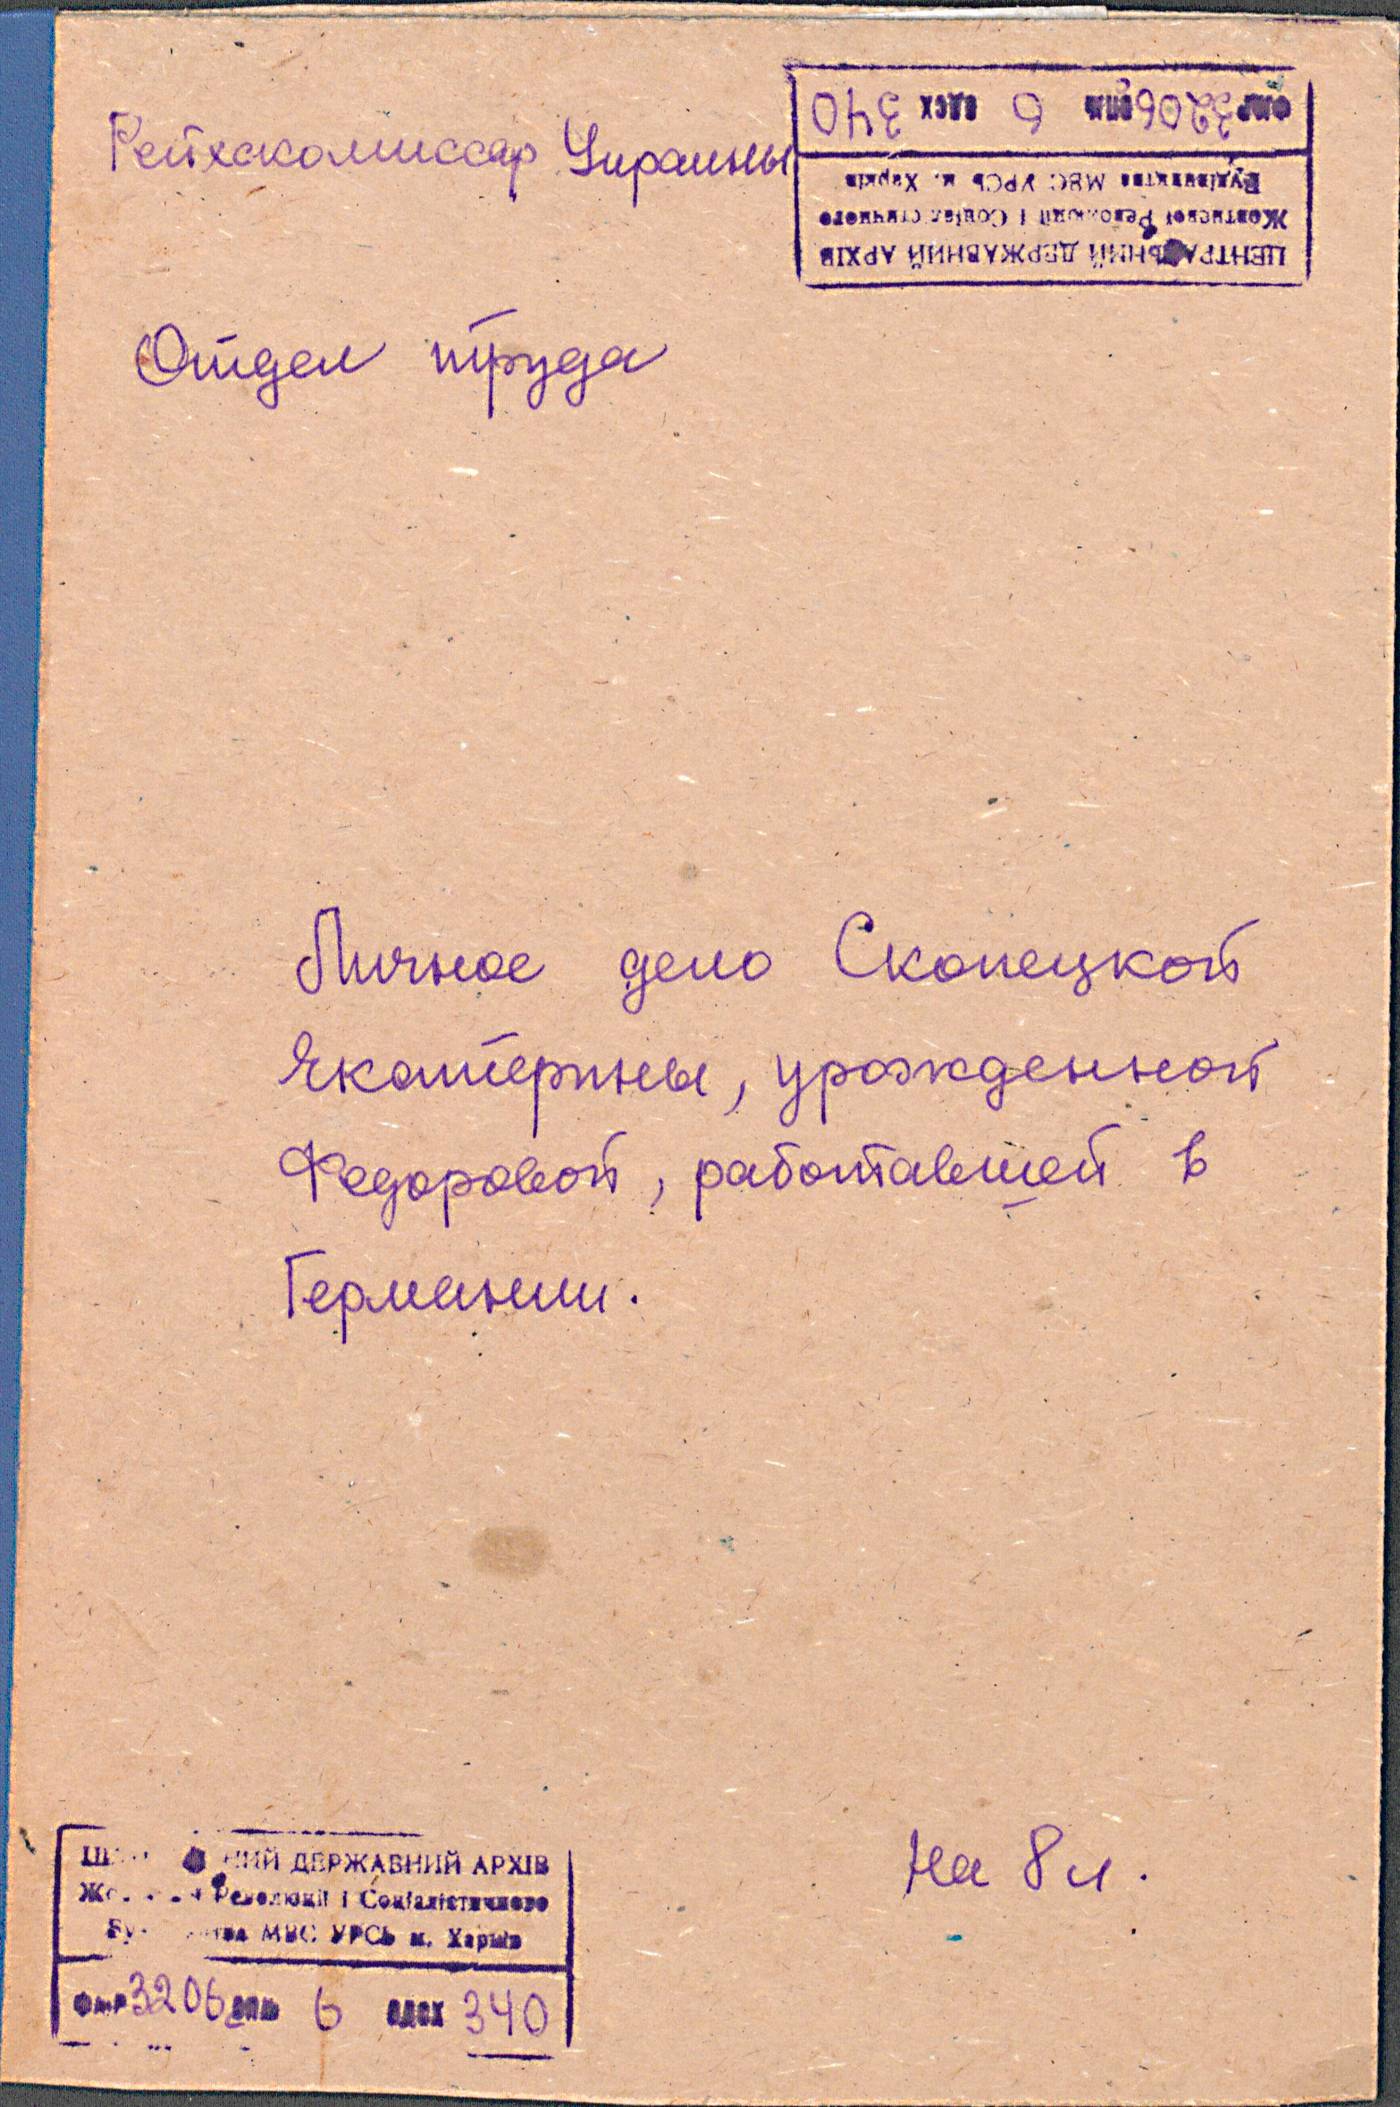 Рейхскомиссар Украины
ЦЕНТРАЛЬНИЙ ДЕРЖАВНИЙ АРХІВ
Жовтневої Революції і Соціалістичного
Будівництва МВС УРСР м. Харків
ФР 3206 опис 6 одсх 340
Отдел труда
Личное дело Скопецкой
Екатерины, урожденной
Федоровой, работавшей в
Германии.
На 8 л.
НИЙ ДЕРЖАВНИЙ АРХІВ
Революції і Соціалістичного
МВС УРСР м. Харків
3206 6 одсх 340